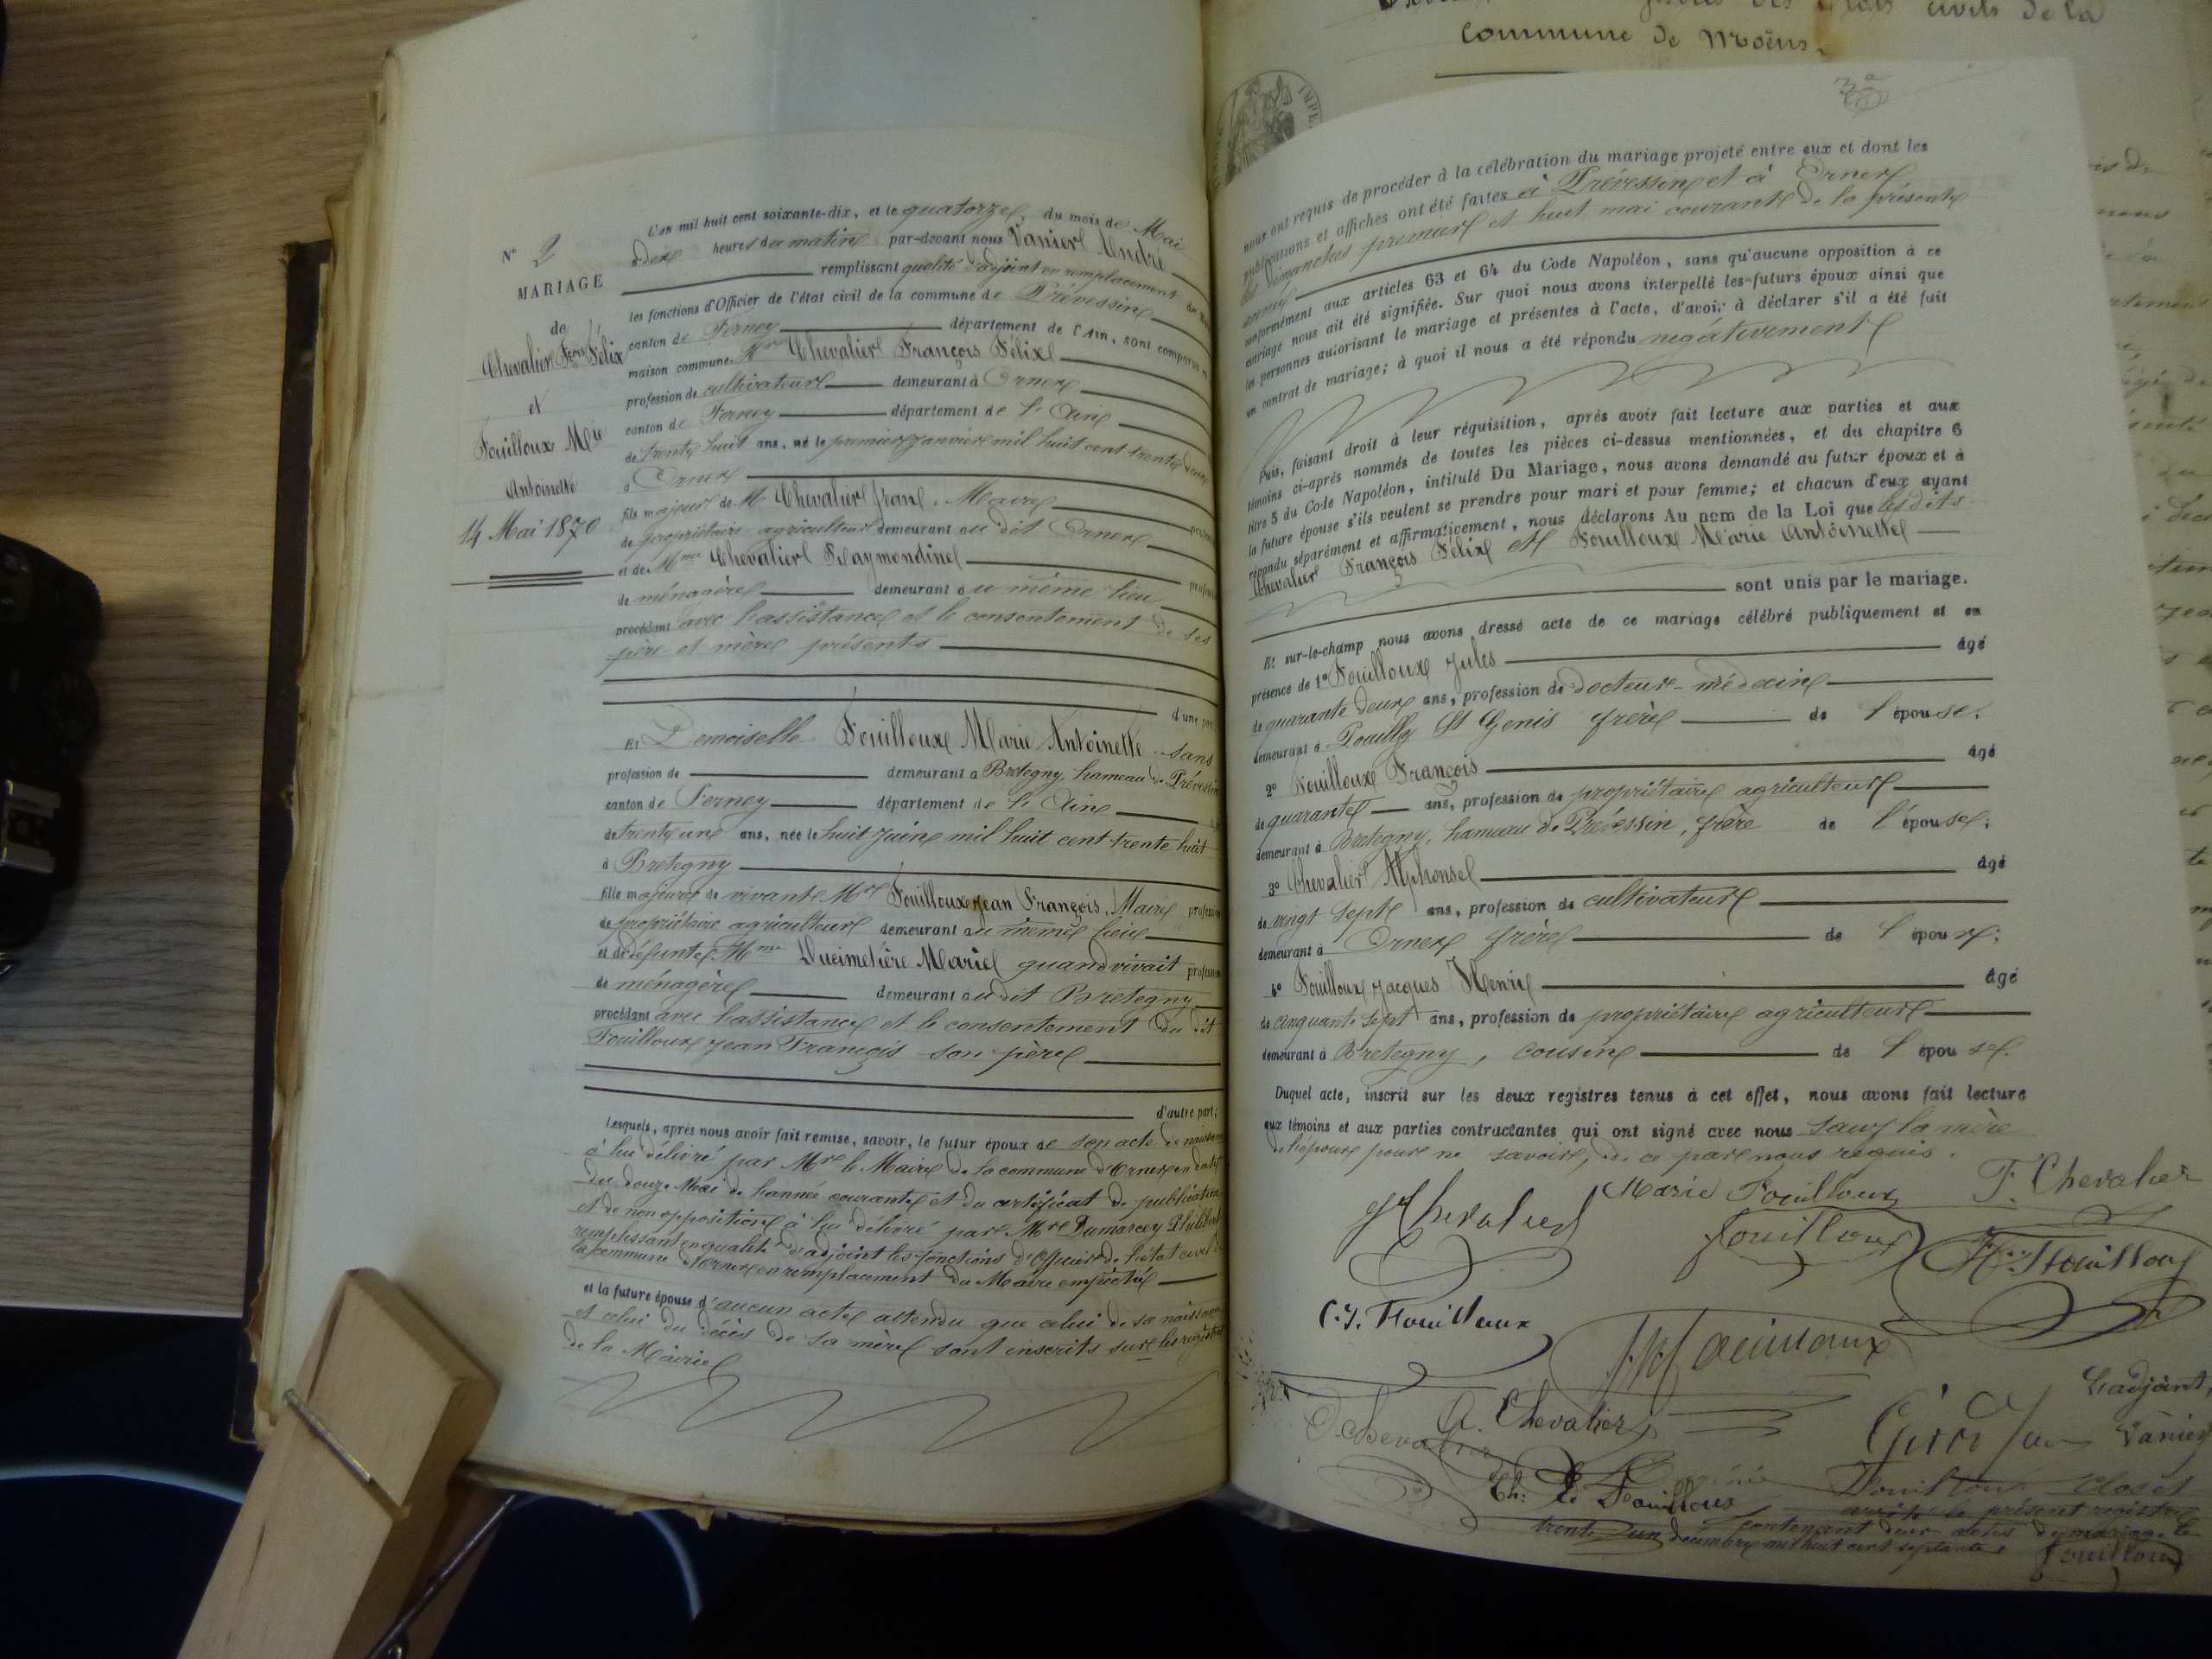 N° 2
MARIAGE
de
Chevalier Fçois Félix
et
Fouilloux Mie
Antoinette
14 Mai 1870
L'an mil huit cent soixante-dix, et le quatorze, du mois de Mai
à dix heures du matin par-devant nous Vanier André
remplissant qualité d'adjoint en remplacement du
les fonctions d'Officier de l'état civil de la commune de Prévessin
canton de Ferney département de l'Ain, sont comparus en
maison commune, Mr Chevalier François Félix
profession de cultivateur demeurant à Ornex
canton de Ferney département de l'Ain
de trente huit ans, né le premier janvier mil huit cent trente deux
à Ornex
fils majeur de Mr Chevalier Jean, Maire
de propriétaire agriculteur demeurant au dit Ornex
et de Mme Chevalier Raymondine
de ménagère demeurant au même lieu
procédant avec l'assistance et le consentement de ses
père et mère présents
d'une part
Et Demoiselle Fouilloux Marie Antoinette sans
profession de demeurant à Bretegny, hameau de Prévessin
canton de Ferney département de l'Ain
de trente une ans, née le huit juin mil huit cent trente huit
à Bretegny
fille majeure de vivant Mr Fouilloux Jean François, Maire profession
de propriétaire agriculteur demeurant au même lieu
et de défunte Mme Ducimetière Marie quand vivait profession
de ménagère demeurant au dit Bretegny
procédant avec l'assistance et le consentement du dit
Fouilloux Jean François son père
d'autre part;
Lesquels, après nous avoir fait remise, savoir, le futur époux de son acte de naissance
à lui délivré par Mr le Maire de la commune d'Ornex en date
du douze Mai de l'année courante et du certificat de publication
et de non opposition à lui délivré par Mr Dumarcey Philibert
remplissant en qualité d'adjoint les fonctions d'Officier de l'état civil de
la commune d'Ornex en remplacement du Maire empêché
et la future épouse d'aucun acte attendu que celui de sa naissance
et celui du décès de sa mère sont inscrits sur les registres
de la Mairie
commune de Moëns
nous ont requis de procéder à la célébration du mariage projeté entre eux et dont les
publications et affiches ont été faites à Prévessin et à Ornex
les dimanches premier et huit mai courant de la présente
année
conformément aux articles 63 et 64 du Code Napoléon, sans qu'aucune opposition à ce
mariage nous ait été signifiée. Sur quoi nous avons interpellé les futurs époux ainsi que
les personnes autorisant le mariage et présentes à l'acte, d'avoir à déclarer s'il a été fait
un contrat de mariage; à quoi il nous a été répondu négativement
Puis, faisant droit à leur réquisition, après avoir fait lecture aux parties et aux
témoins ci-après nommés de toutes les pièces ci-dessus mentionnées, et du chapitre 6
titre 5 du Code Napoléon, intitulé Du Mariage, nous avons demandé au futur époux et à
la future épouse s'ils veulent se prendre pour mari et pour femme; et chacun d'eux ayant
répondu séparément et affirmativement, nous déclarons Au nom de la Loi que les dits
Chevalier François Félix et Fouilloux Marie Antoinette
sont unis par le mariage.
Et sur-le-champ nous avons dressé acte de ce mariage célébré publiquement et en
présence de 1° Fouilloux Jules âgé
de quarante deux ans, profession de docteur-médecin
demeurant à Pouilly St Genis frère de l'épouse.
2° Fouilloux François âgé
de quarante ans, profession de propriétaire agriculteur
demeurant à Bretegny, hameau de Prévessin, frère de l'épouse;
3° Chevalier Alphonse âgé
de vingt sept ans, profession de cultivateur
demeurant à Ornex frère de l'époux;
4° Fouilloux Jacques Henri âgé
de cinquante sept ans, profession de propriétaire agriculteur
demeurant à Bretegny, cousin de l'épouse.
Duquel acte, inscrit sur les deux registres tenus à cet effet, nous avons fait lecture
aux témoins et aux parties contractantes qui ont signé avec nous sauf la mère
de l'époux pour ne savoir, de ce par nous requis.
Chevalier Marie Fouilloux F. Chevalier
Fouilloux Fouilloux
C.J. Fouilloux
Fouilloux
L'adjoint,
A. Chevalier Vanier
Chevalier
Ch. Fouilloux Fouilloux Clos et
arrêté le présent registre
contenant deux actes de mariage le
trente un décembre mil huit cent septante
Fouilloux